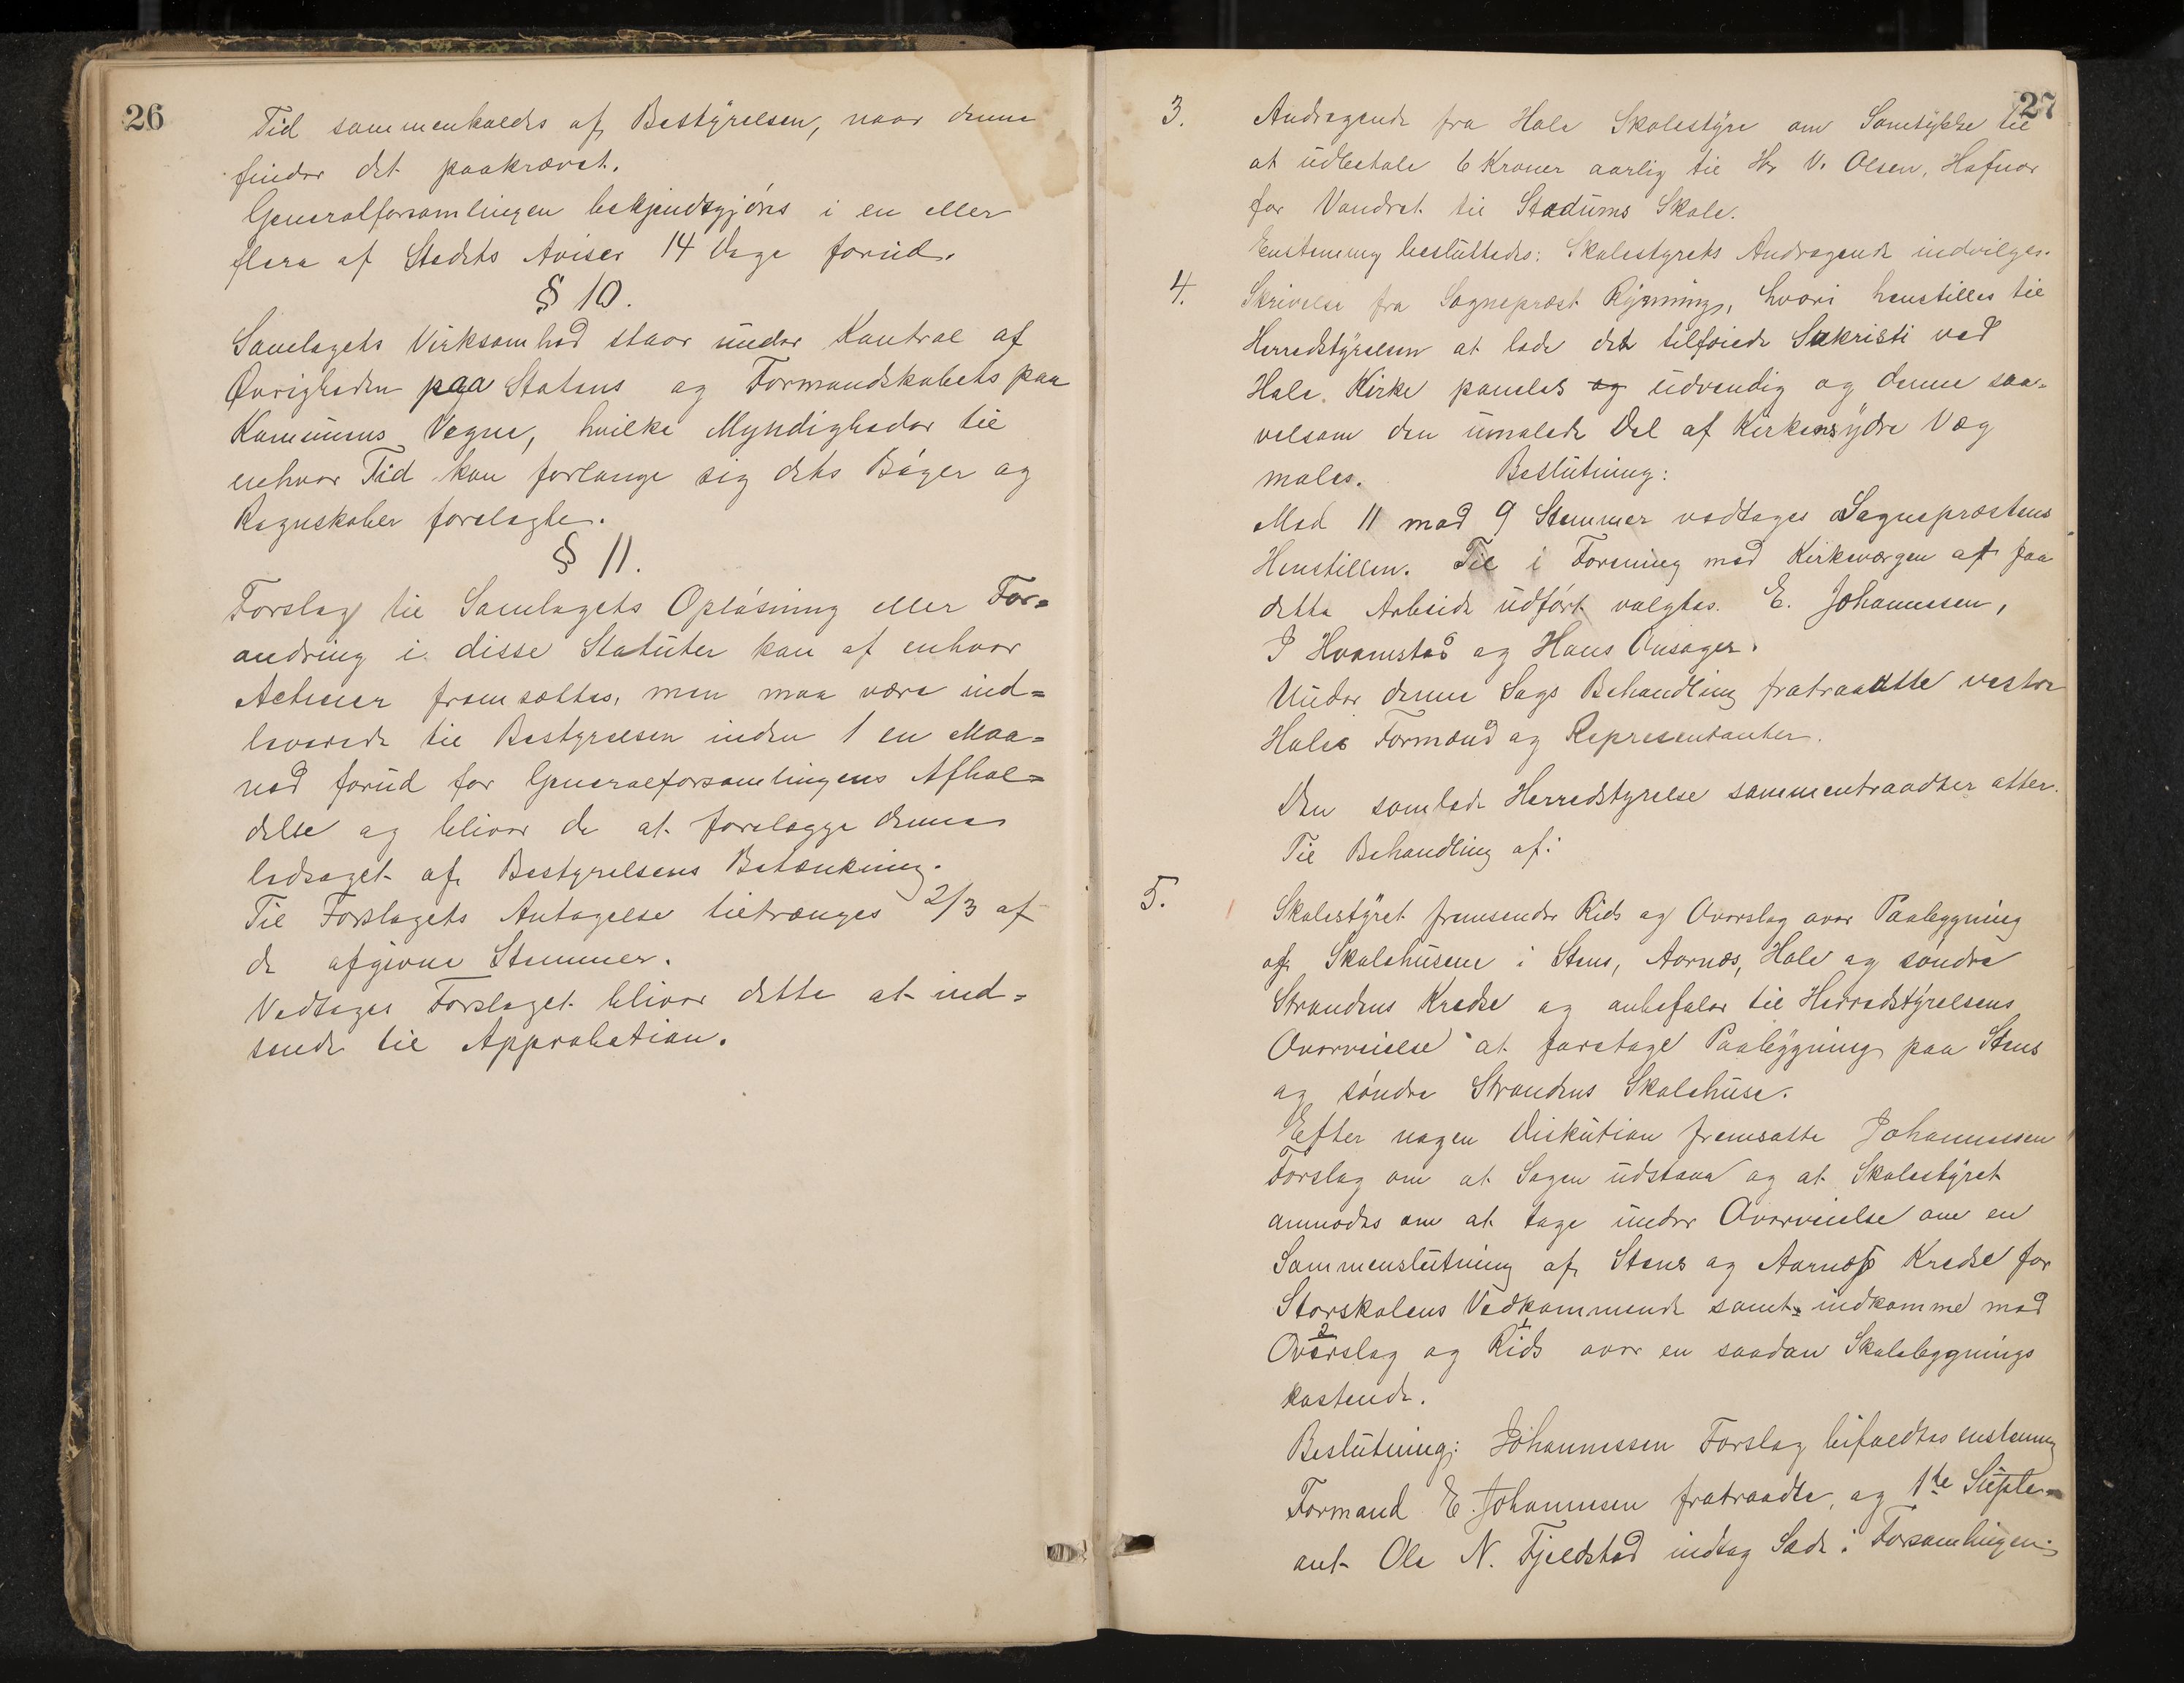 26
Tid sammenkaldes af Bestyrelsen, naar denne
finder det paakrævet.
Generalforsamlingen bekjendtgjøres i en eller
flere af Stedets Aviser 14 Dage forud.
§ 10.
Samlagets Virksomhed staar under Kontrol af
Øvrigheden paa Statens og Formandskabets paa
Kommunens Vegne, hvilke Myndigheder til
enhver Tid kan forlange sig dets Bøger og
Regnskaber forelagte.
§ 11.
Forslag til Samlagets Opløsning eller For=
andring i disse Statuter kan af enhver
Actionær fremsættes, men maa være ind=
leverede til Bestyrelsen inden 1 en Maa=
ned forud for Generalforsamlingens Afhol=
delse og bliver de at forelægge denne
ledsaget af Bestyrelsens Betænkning.
Til Forslagets Antagelse tiltrænges 2/3 af
de afgivne Stemmer.
Vedtages Forslaget bliver dette at ind=
sende til Approbation.
27
3. Andragende fra Hole Skolestyre om Samtykke til
at udbetale 6 Kroner aarlig til Hr V. Olsen, Hafnor
for Vandret til Stadums Skole.
Enstemmig besluttedes: Skolestyrets Andragende indvilges.
4. Skrivelse fra Sognepræst Rynning, hvori henstilles til
Herredstyrelsen at lade det tilføiede Sakristi ved
Hole Kirke paneles og udvendig og denne saa=
velsom den umalede Del af Kirkens ydre Væg
males. Beslutning:
Med 11 mod 9 Stemmer vedtages Sognepræstens
Henstillen. Til i Forening med Kirkeværgen at faa
dette Arbeide udført valgtes E. Johannessen,
I Hvamstad og Hans Onsager.
Under denne Sags Behandling fratraadte vestre
Holes Formænd og Representanter.
Den samlede Herredstyrelse sammentraadter atter.
Til Behandling af:
5. Skolestyret fremsender Rids og Overslag over Paabygning
af Skolehusene i Stens, Aarnæs, Hole og søndre
Strandens Kredse og anbefaler til Herredstyrelsens
Overveielse at foretage Paabygning paa Stens
og søndre Strandens Skolehuse.
Efter nogen Diskution fremsatte Johannessen
Forslag om at Sagen udstaar og at Skolestyret
anmodes om at tage under Overveielse om en
Sammenslutning af Stens og Aarnæs Kredse for
Storskolens Vedkommende samt indkomme med
2 1
Overslag og Rids over en saadan Skolebygnings
kostende.
Beslutning: Johannessen Forslag bifaldtes enstemmig
Formand E. Johannesen fratraadte, og 1te Suple=
ant Ole N. Fjeldstad indtog Sæde i Forsamlingen.